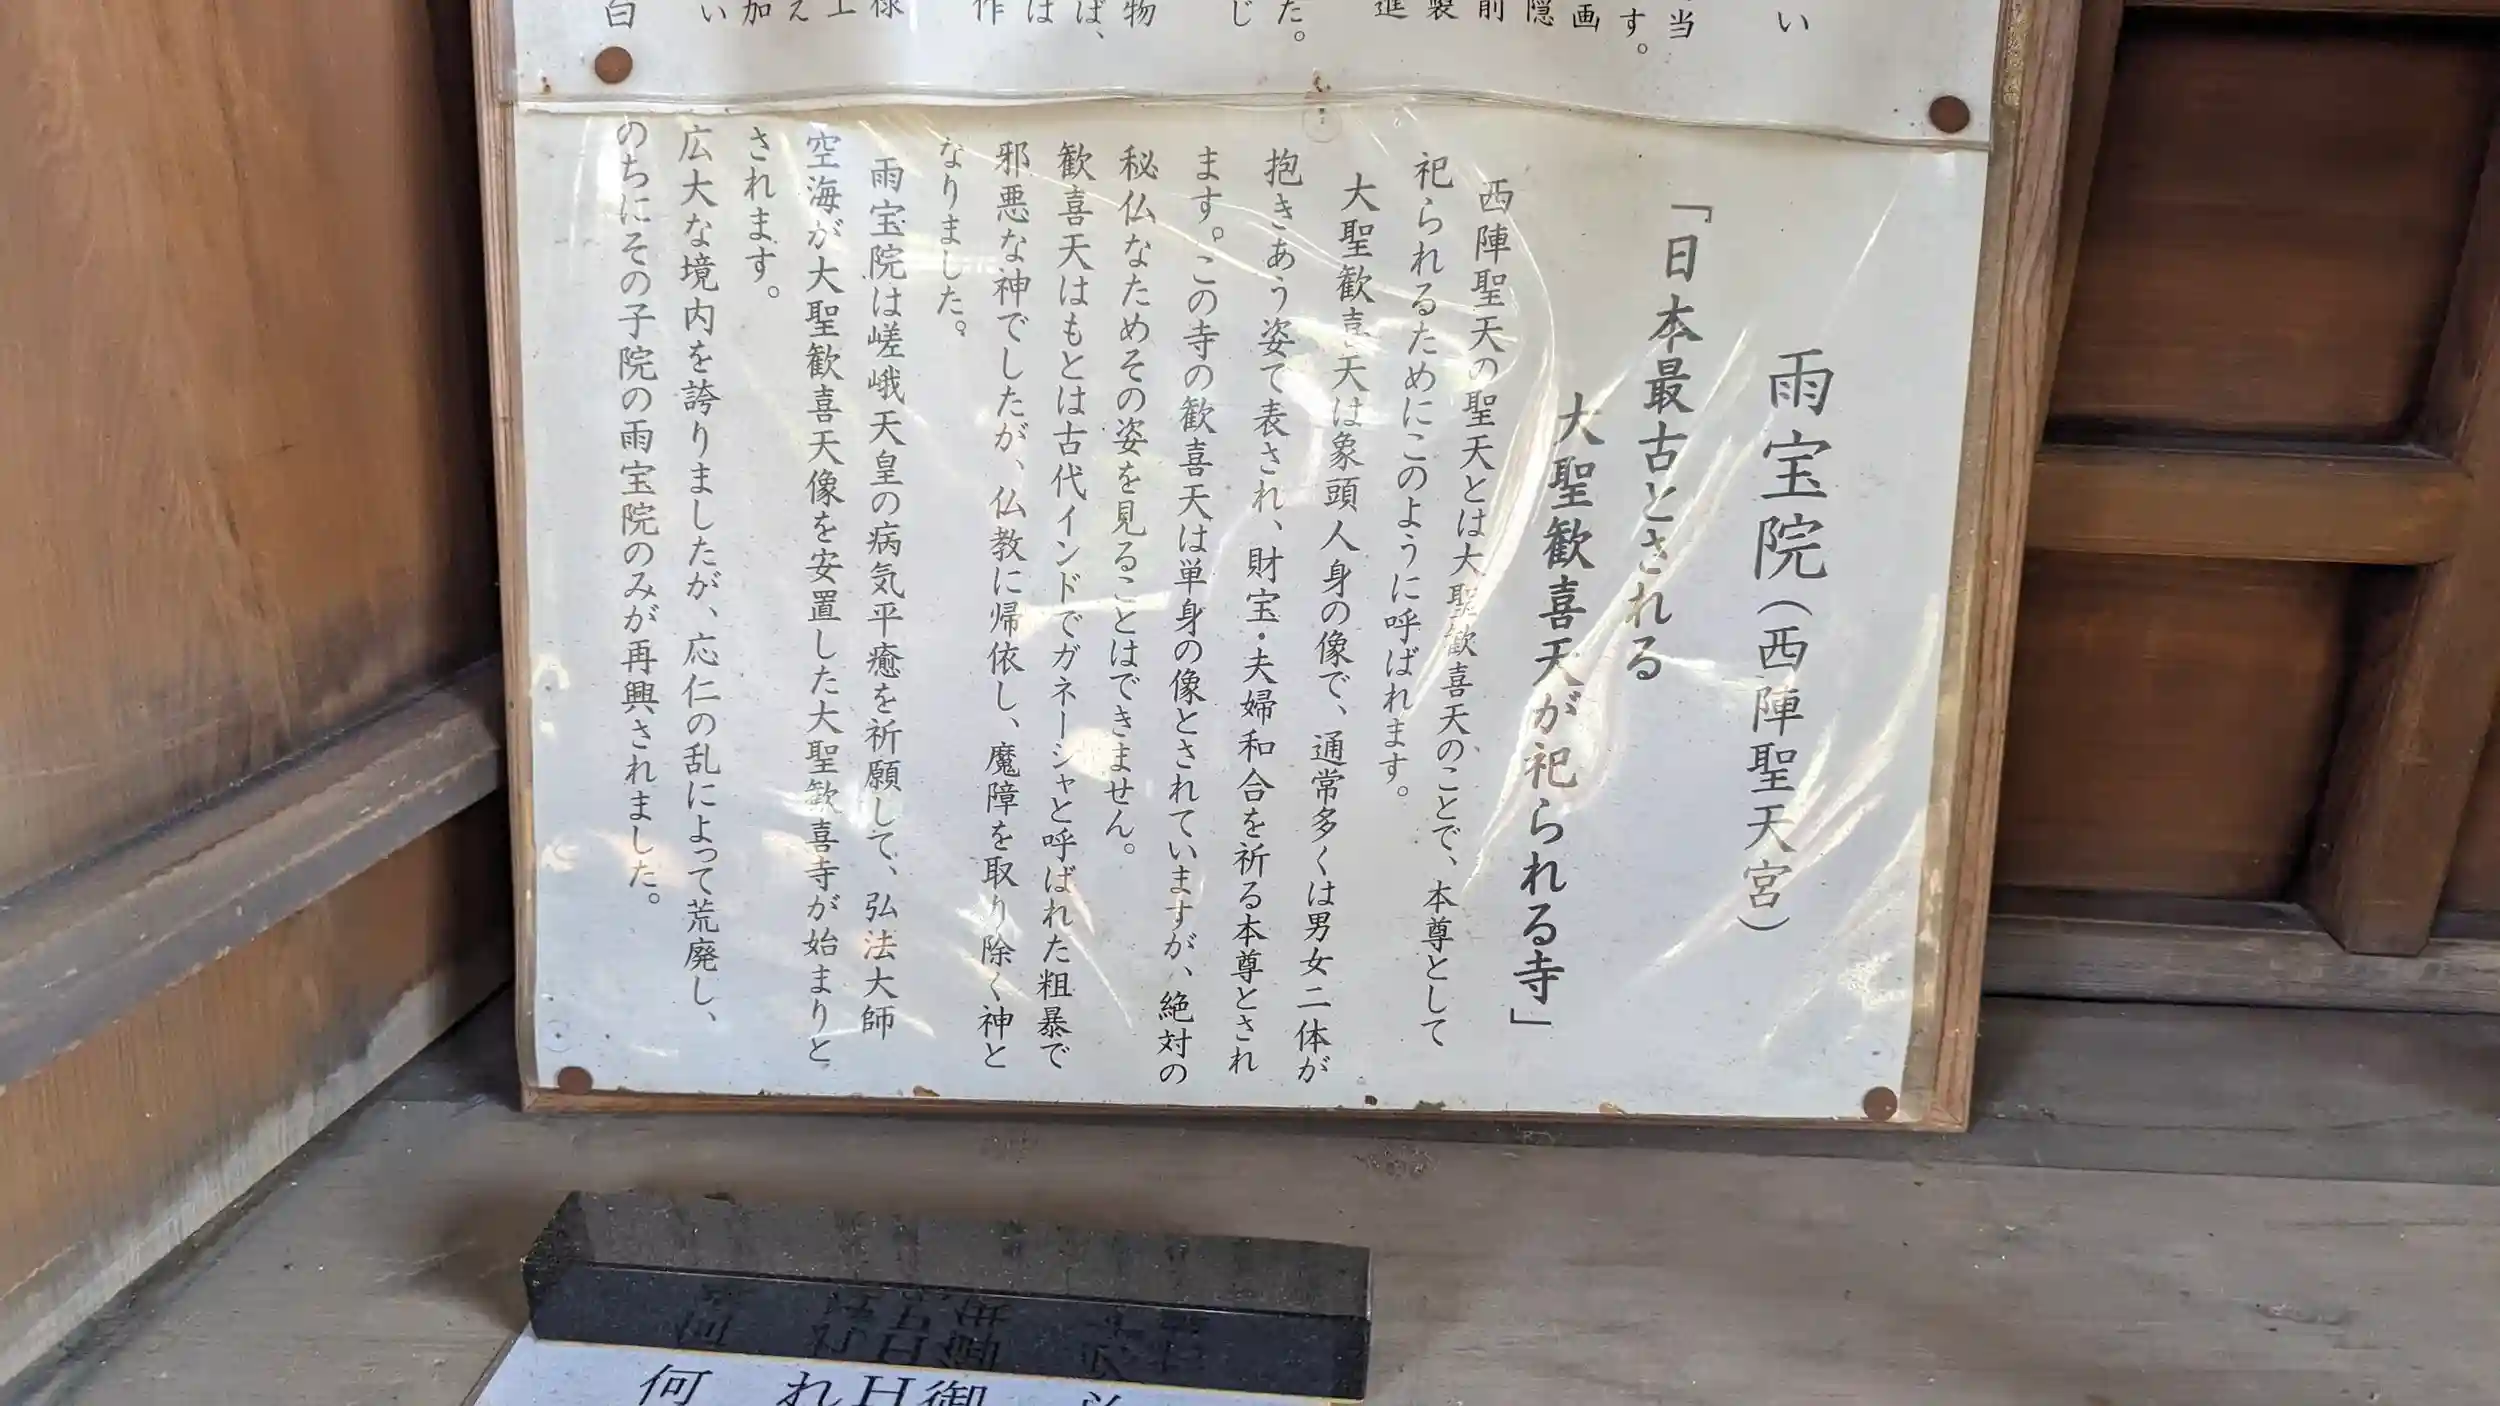 い
当
す。
画
隠
前
製
進
た。
じ
物
ば、
は
作
様
工
え
加
い
白
雨宝院（西陣聖天宮）
「日本最古とされる
大聖歓喜天が祀られる寺」
西陣聖天の聖天とは大聖歓喜天のことで、本尊として
祀られるためにこのように呼ばれます。
大聖歓喜天は象頭人身の像で、通常多くは男女二体が
抱きあう姿で表され、財宝・夫婦和合を祈る本尊とされ
ます。この寺の歓喜天は単身の像とされていますが、絶対の
秘仏なためその姿を見ることはできません。
歓喜天はもとは古代インドでガネーシャと呼ばれた粗暴で
邪悪な神でしたが、仏教に帰依し、魔障を取り除く神と
なりました。
雨宝院は嵯峨天皇の病気平癒を祈願して、弘法大師
空海が大聖歓喜天像を安置した大聖歓喜寺が始まりと
されます。
広大な境内を誇りましたが、応仁の乱によって荒廃し、
のちにその子院の雨宝院のみが再興されました。
御
れ
何